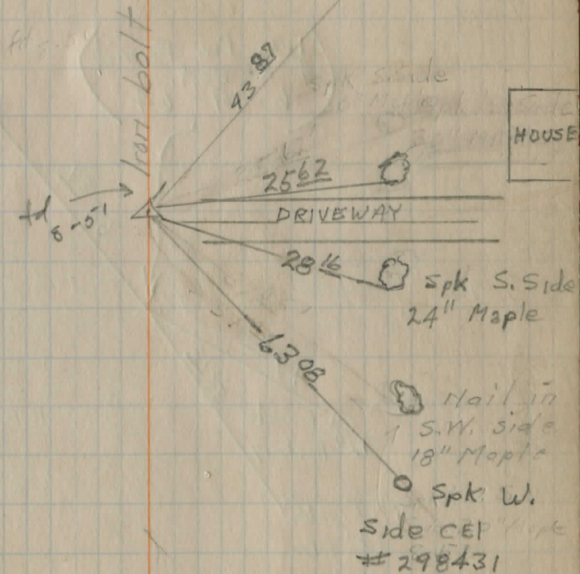 Iron bolt
43 87
Spk S. Side
HOUSE
25 62
fd
8-5-1
DRIVEWAY
28 16
Spk S. Side
24" Maple
63 08
Nail in
S.W. Side
18" Maple
Spk W.
Side CEI
# 298431